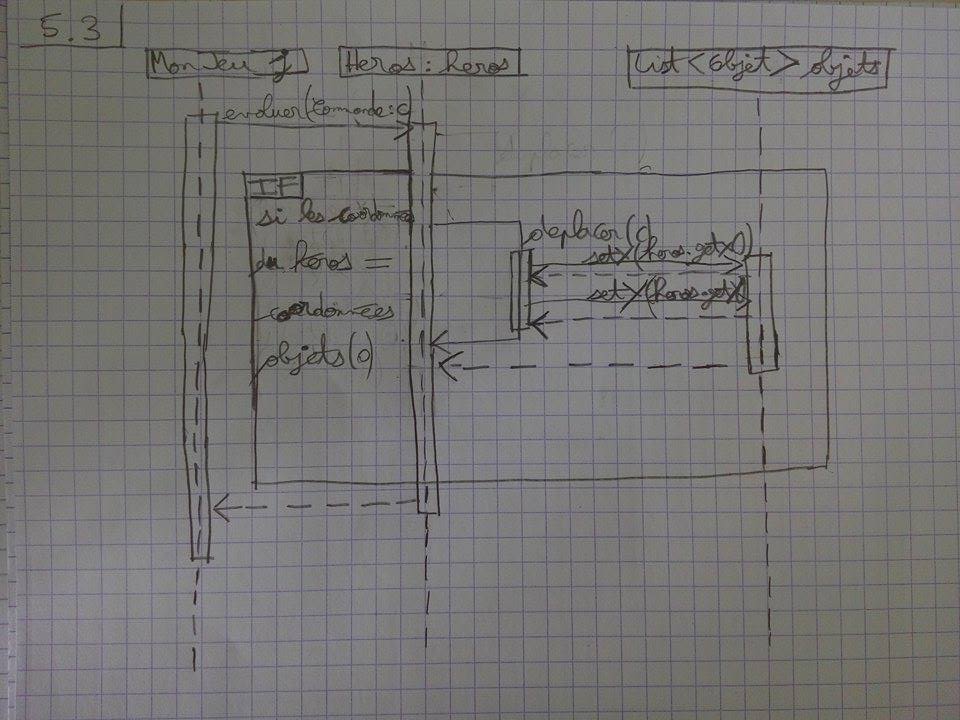 5.3
MonJeu j
Heros : heros
List<Objet> objets
evoluer(Commande:c)
deplacer
IF
si les coordonnées
du heros =
coordonnées
objets(0)
deplacer(c)
setX(heros.getX()
setY(heros.getY(